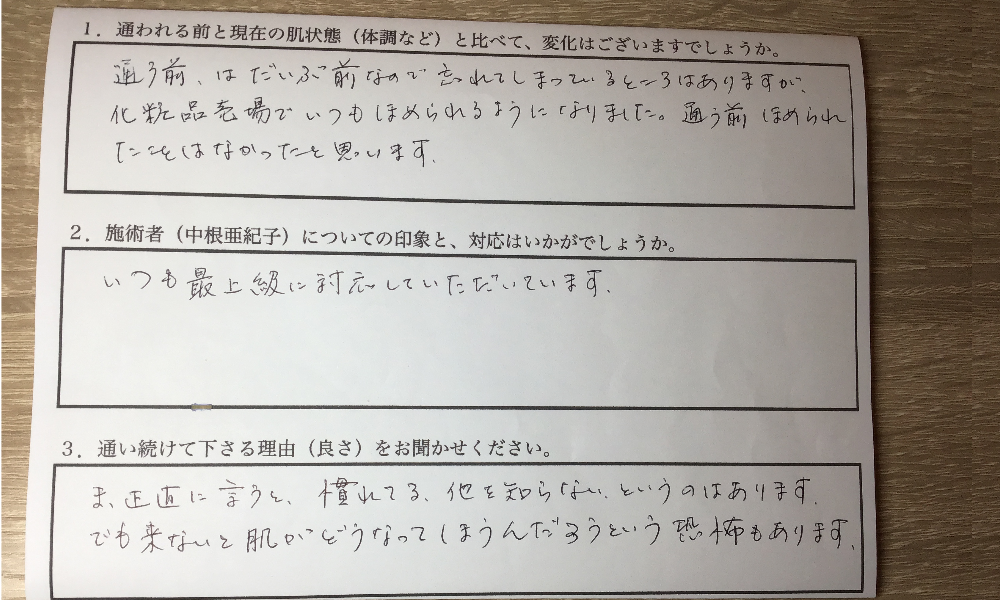 1．通われる前と現在の肌状態（体調など）と比べて、変化はございますでしょうか。
通う前、はだいぶ前なので忘れてしまっているところはありますが、
化粧品売場でいつもほめられるようになりました。通う前ほめられ
たことはなかったと思います。
2．施術者（中根亜紀子）についての印象と、対応はいかがでしょうか。
いつも最上級に対応していただいています。
3．通い続けて下さる理由（良さ）をお聞かせください。
ま、正直に言うと、慣れてる、他を知らない、というのはあります。
でも来ないと肌がどうなってしまうんだろうという恐怖もあります。